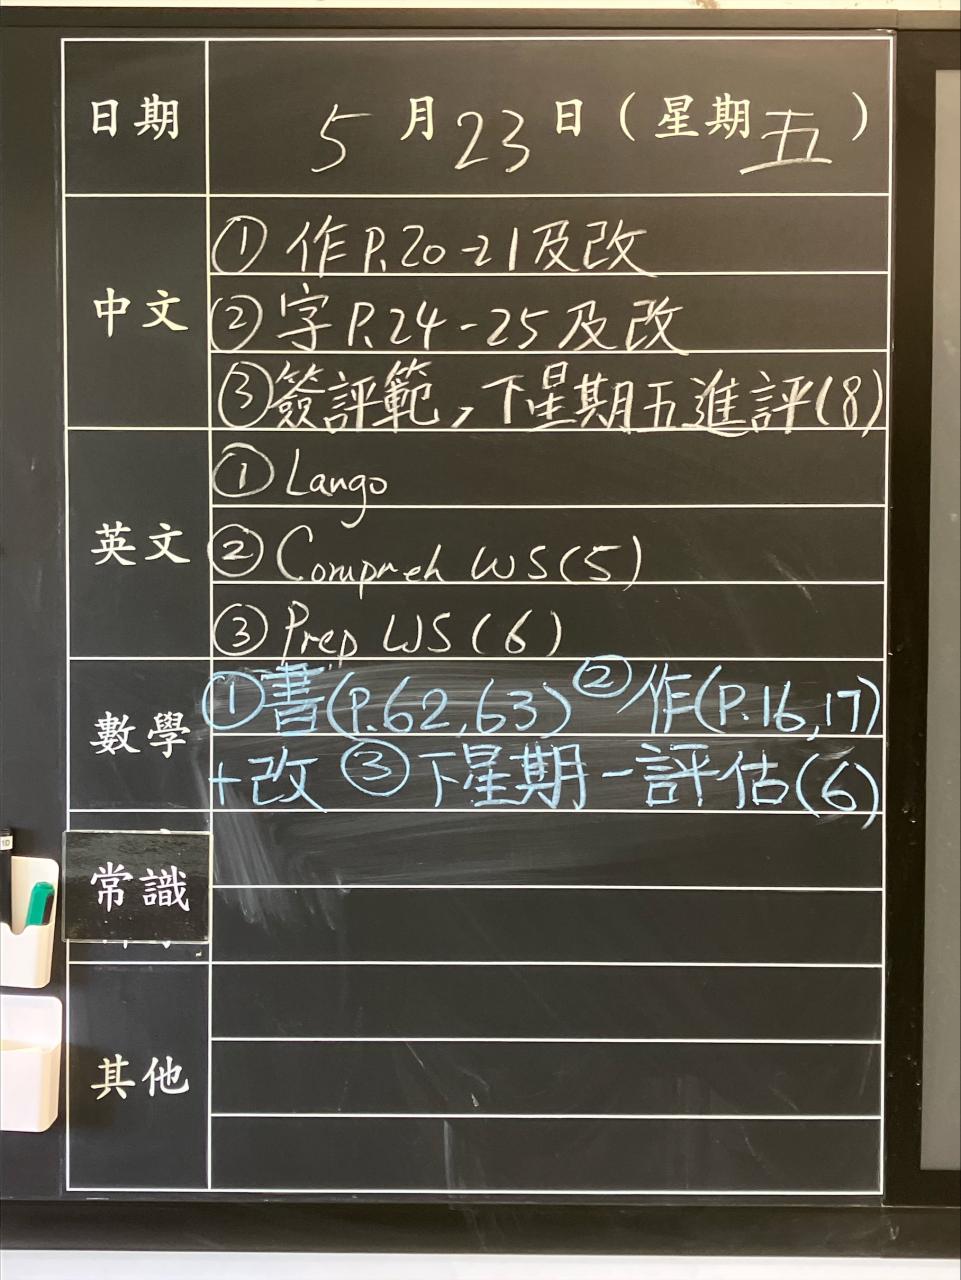 日期 5月23日（星期五）
中文
① 作P.20-21及改
② 字P.24-25及改
③簽評範，下星期五進評(8)
英文
① Lango
② Compreh WS(5)
③ Prep WS(6)
數學
①書(P.62,63) ②作(P.16,17)
+改 ③下星期一評估(6)
常識
其他